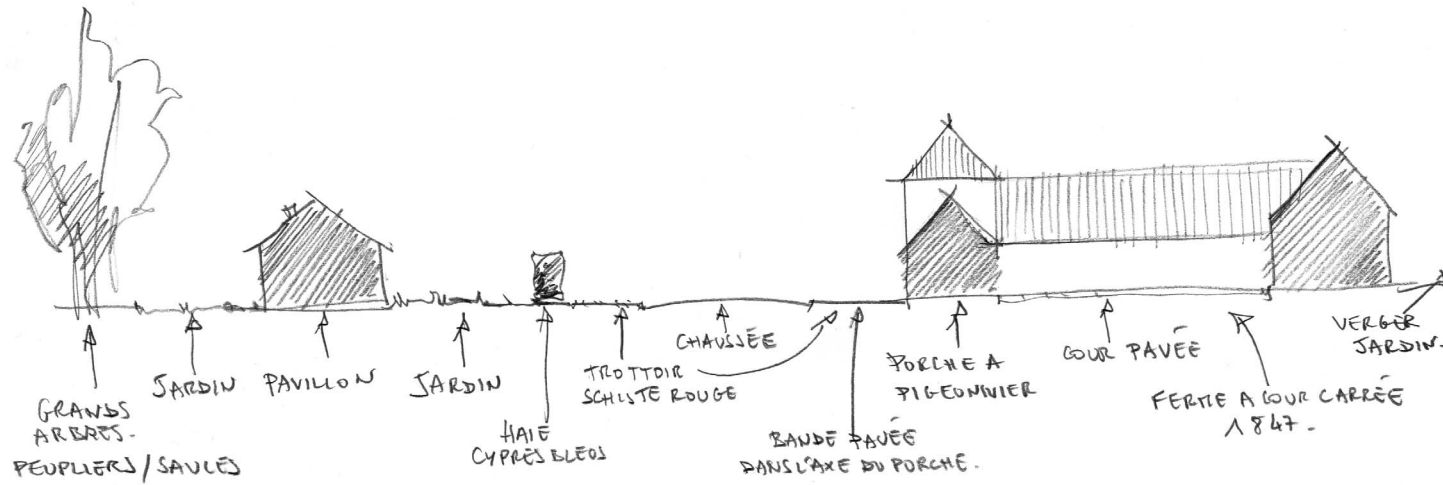 GRANDS
ARBRES.
PEUPLIERS/SAULES
JARDIN
PAVILLON
JARDIN
HAIE
CYPRES BLEUS
TROTTOIR
SCHISTE ROUGE
CHAUSSÉE
BANDE PAVÉE
DANS L'AXE DU PORCHE.
PORCHE A
PIGEONNIER
COUR PAVÉE
FERME A COUR CARRÉE
1847.
VERGER
JARDIN.